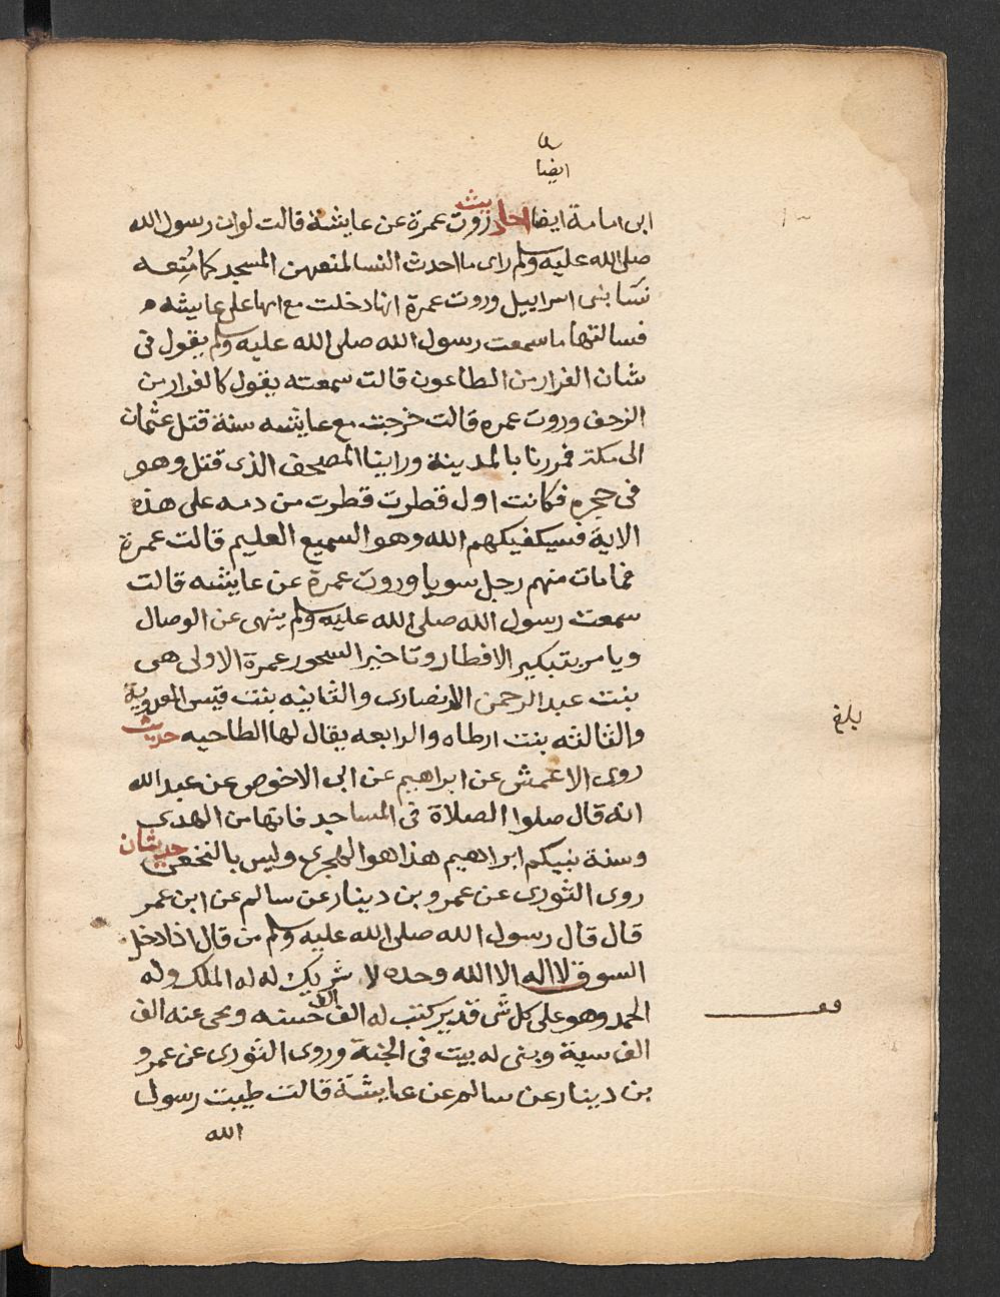 ايضا
ابى امامة ايضا احاديث روت عمرة عن عايشة قالت لو ان رسول الله
صلى الله عليه وسلم راى ما احدث النسا لمنعهن المسجد كما مُنِعه
نسَا بنى اسراييل وروت عمرة انها دخلت مع امها على عايشه
فسالتها ما سمعت رسول الله صلى الله عليه وسلم يقول فى
شان الفرار من الطاعون قالت سمعته يقول كالفرار من
الزحف وروت عمره قالت خرجت مع عايشه سنة قتل عثمان
الى مكة فمررنا بالمدينة وراينا المصحف الذى قتل وهو
فى حجره فكانت اول قطرت قطرت من دمه على هذه
الاية فسيكفيكهم الله وهو السميع العليم قالت عمرة
فما مات منهم رجل سويا وروت عمرة عن عايشه قالت
سمعت رسول الله صلى الله عليه وسلم ينهى عن الوصال
ويامر بتبكير الافطار وتاخير السحور عمرة الاولى هى
بنت عبد الرحمن الانصارى والثانيه بنت قيس العدوية
والثالثه بنت ارطاه والرابعه يقال لها الطاحيه حديث
بلغ
روى الاعمش عن ابراهيم عن ابى الاخوص عن عبد الله
انه قال صلوا الصلاة فى المساجد فانها من الهدى
وسنة نبيكم ابراهيم هذا هو الهجرى وليس بالنخعى حديثان
روى الثورى عن عمرو بن دينار عن سالم عن ابن عمر
قال قال رسول الله صلى الله عليه وسلم من قال اذا دخل
السوق لا اله الا الله وحده لا شريك له له الملك وله
الحمد وهو على كل شى قدير كتب له الف الف حسنه ومحى عنه الف
الف سية وبنى له بيت فى الجنة وروى الثورى عن عمرو
بن دينار عن سالم عن عايشة قالت طيبت رسول
الله